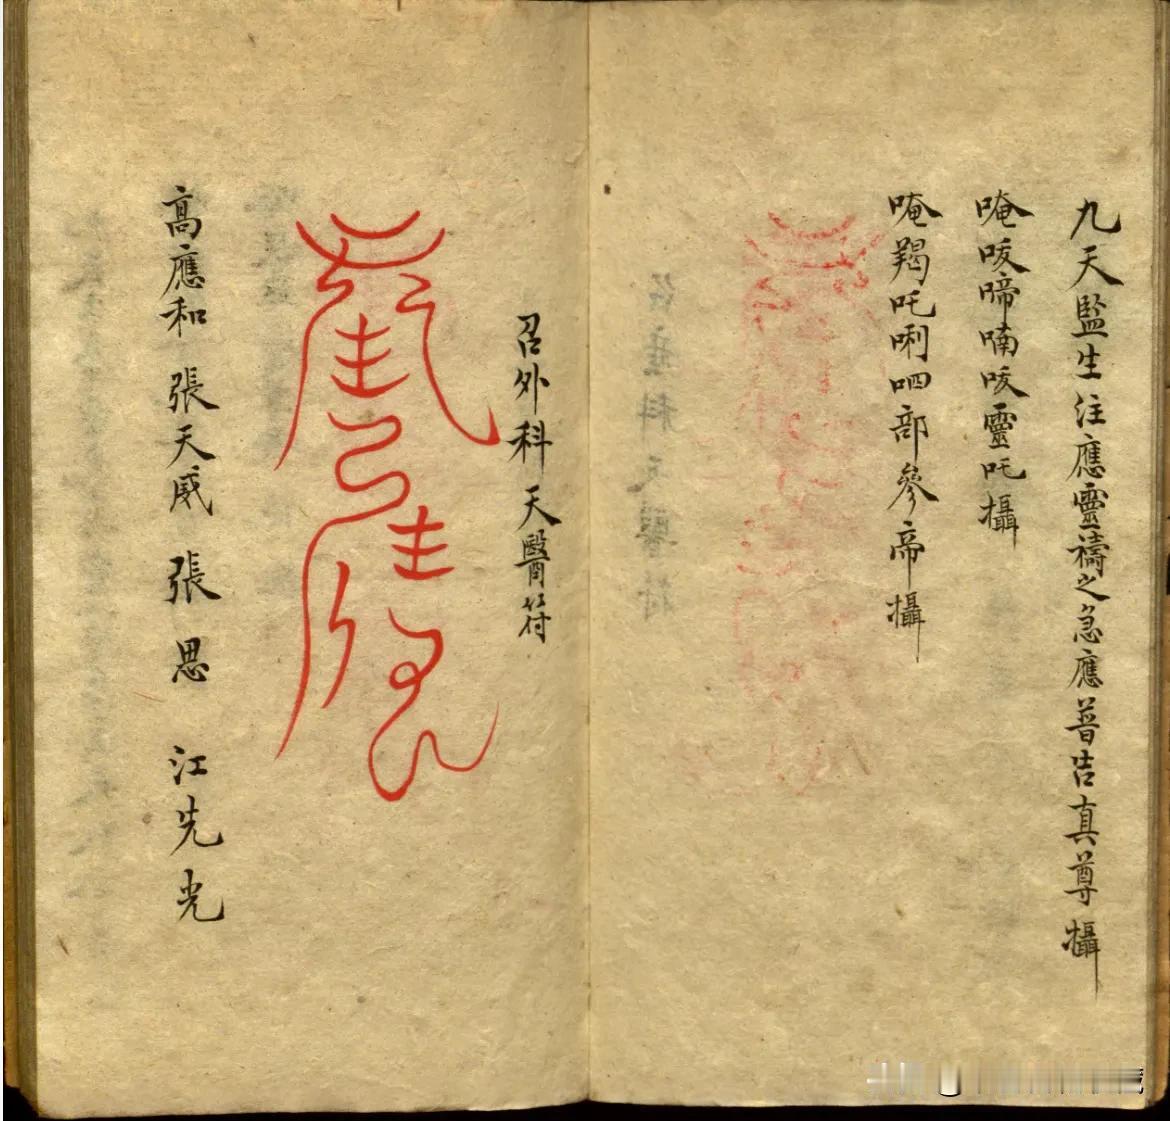 九天監生注應靈禱之急應普告真尊攝
唵㕹啼喃㕹靈吒攝
唵羯吒唎呬部參帝攝
召外科天醫符
高應和 張天威 張思 江先光